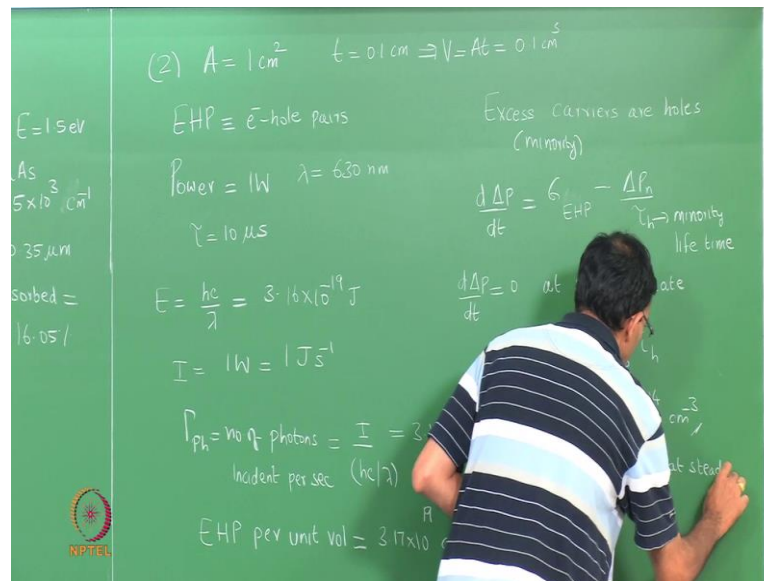 E = 1.5 eV
As
5×10³ cm⁻¹
0.35 μm
sorbed =
16.05%
(2) A = 1 cm² t = 0.1 cm ⇒ V = At = 0.1 cm³
EHP ≡ e⁻-hole pairs
Power = 1W λ = 630 nm
τ = 10 μs
E = hc/λ = 3.16×10⁻¹⁹ J
I = 1W = 1 Js⁻¹
Γph = no of photons = I/(hc/λ) = 3.
incident per sec
EHP per unit vol = 3.17×10¹⁹
Excess carriers are holes
(minority)
dΔP/dt = G_EHP − ΔPn/τh → minority
life time
dΔP/dt = 0 at ate
τh
cm⁻³
at stead
NPTEL